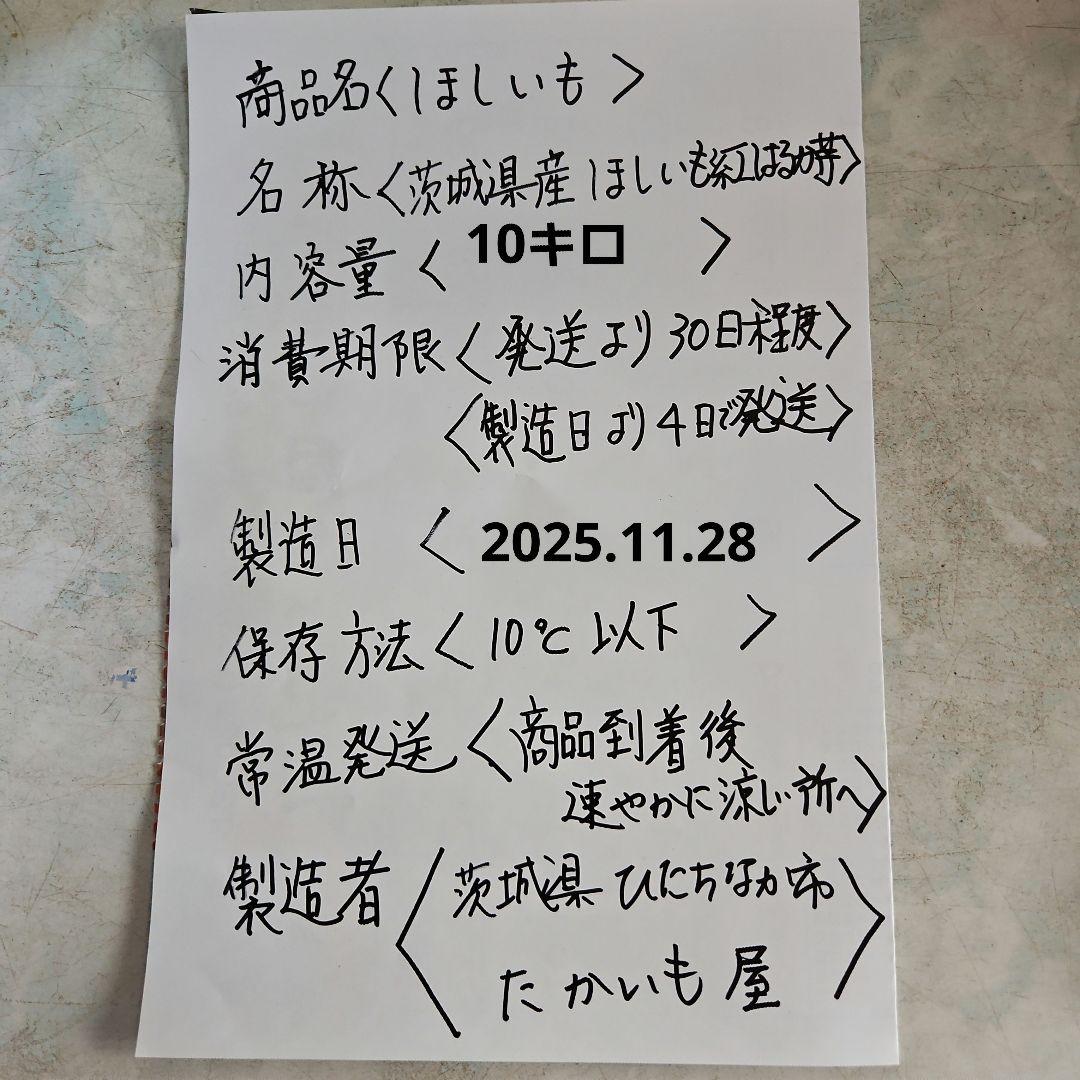 商品名〈ほしいも〉
名称〈茨城県産ほしいも紅はるか芋〉
内容量〈10キロ〉
消費期限〈発送より30日程度〉
〈製造日より4日で発送〉
製造日〈2025.11.28〉
保存方法〈10℃以下〉
常温発送〈商品到着後
速やかに涼しい所へ〉
製造者〈茨城県ひたちなか市
たかいも屋〉